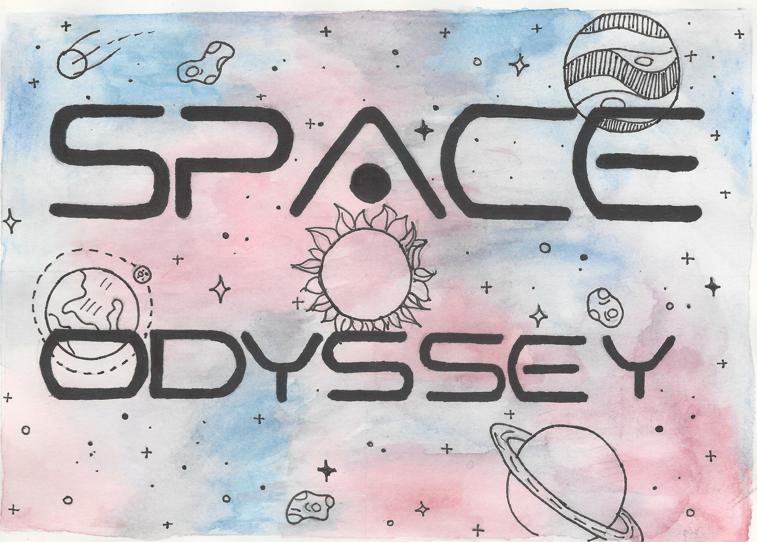 SPACE
ODYSSEY